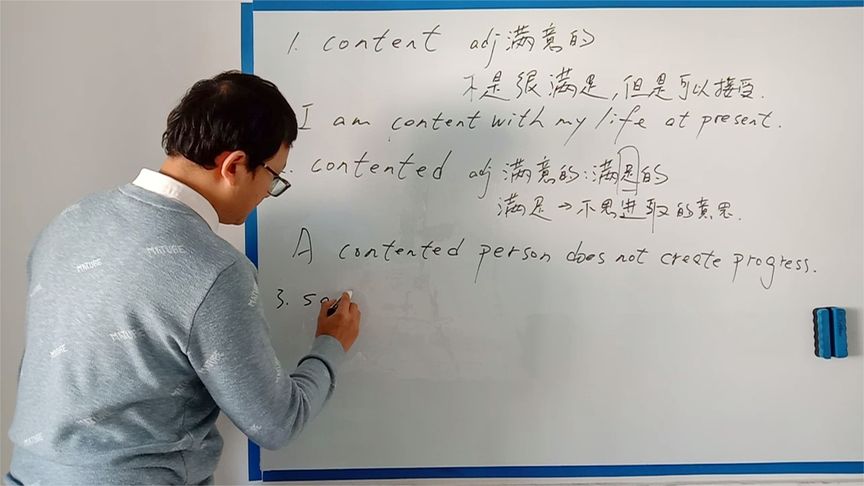 1. content adj 满意的
不是很满足,但是可以接受.
I am content with my life at present.
. contented adj 满意的:满足的
满足→不思进取的意思.
A contented person does not create progress.
3. sa
MATURE
MATUBE
MATURE
MATURE
MATURE